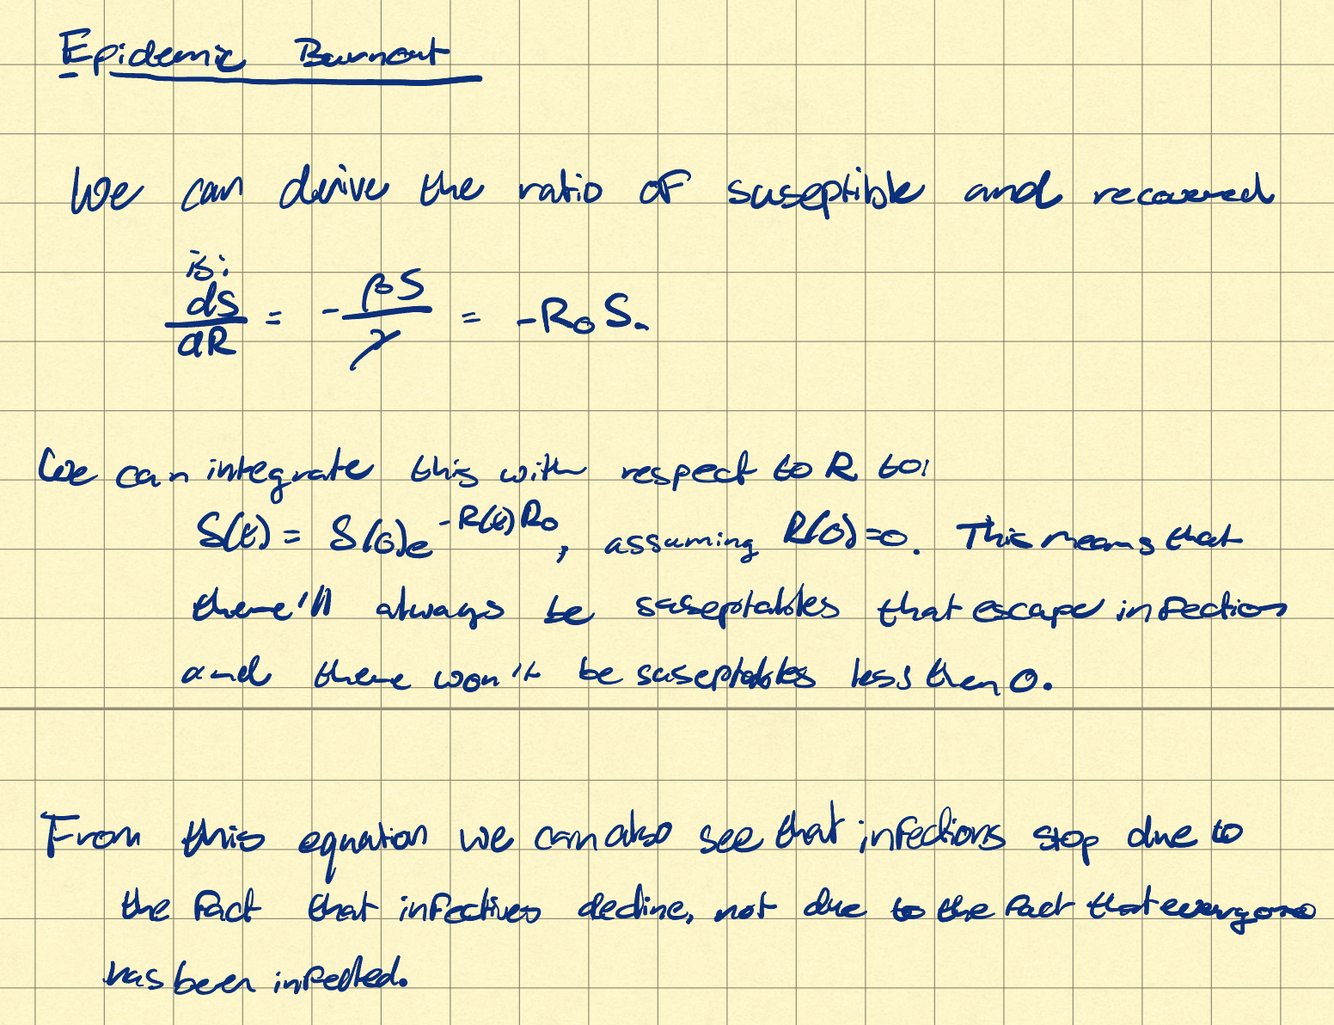 Epidemic Burnout
We can derive the ratio of suseptible and recovered
is:
dS/dR = -βS/γ = -R₀S.
We can integrate this with respect to R to:
S(t) = S(0)e^{-R(t)R₀}, assuming R(0)=0. This means that
there'll always be suseptables that escape infection
and there won't be suseptables less then 0.
From this equation we can also see that infections stop due to
the fact that infectives decline, not due to the fact that everyone
has been infected.